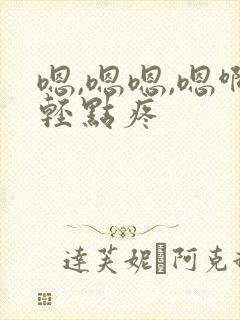 嗯,嗯嗯,嗯啊
輕點疼
達芙妮 阿克